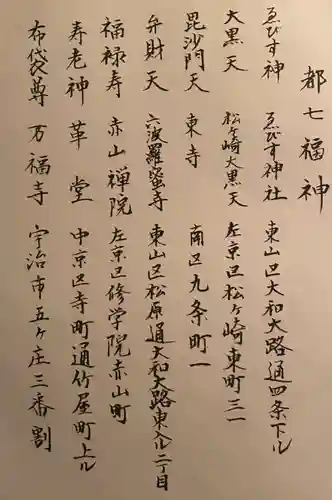 都七福神
ゑびす神 ゑびす神社 東山区大和大路通四条下ル
大黒天 松ヶ崎大黒天 左京区松ヶ崎東町三一
毘沙門天 東寺 南区九条町一
弁財天 六波羅蜜寺 東山区松原通大和大路東入ル二丁目
福禄寿 赤山禅院 左京区修学院赤山町
寿老神 革堂 中京区寺町通竹屋町上ル
布袋尊 万福寺 宇治市五ヶ庄三番割